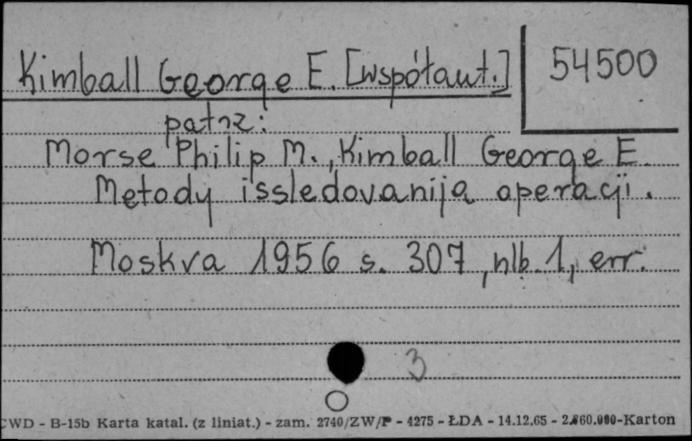 Kimball George E. [współaut.]
54500
patrz:
Morse Philip M., Kimball George E.
Metody issledovanija operacji.
Moskva 1956 s. 307, nlb. 1, err.
3
CWD - B-15b Karta katal. (z liniat.) - zam. 2740/ZW/P - 4275 - ŁDA - 14.12.65 - 2.860.000-Karton